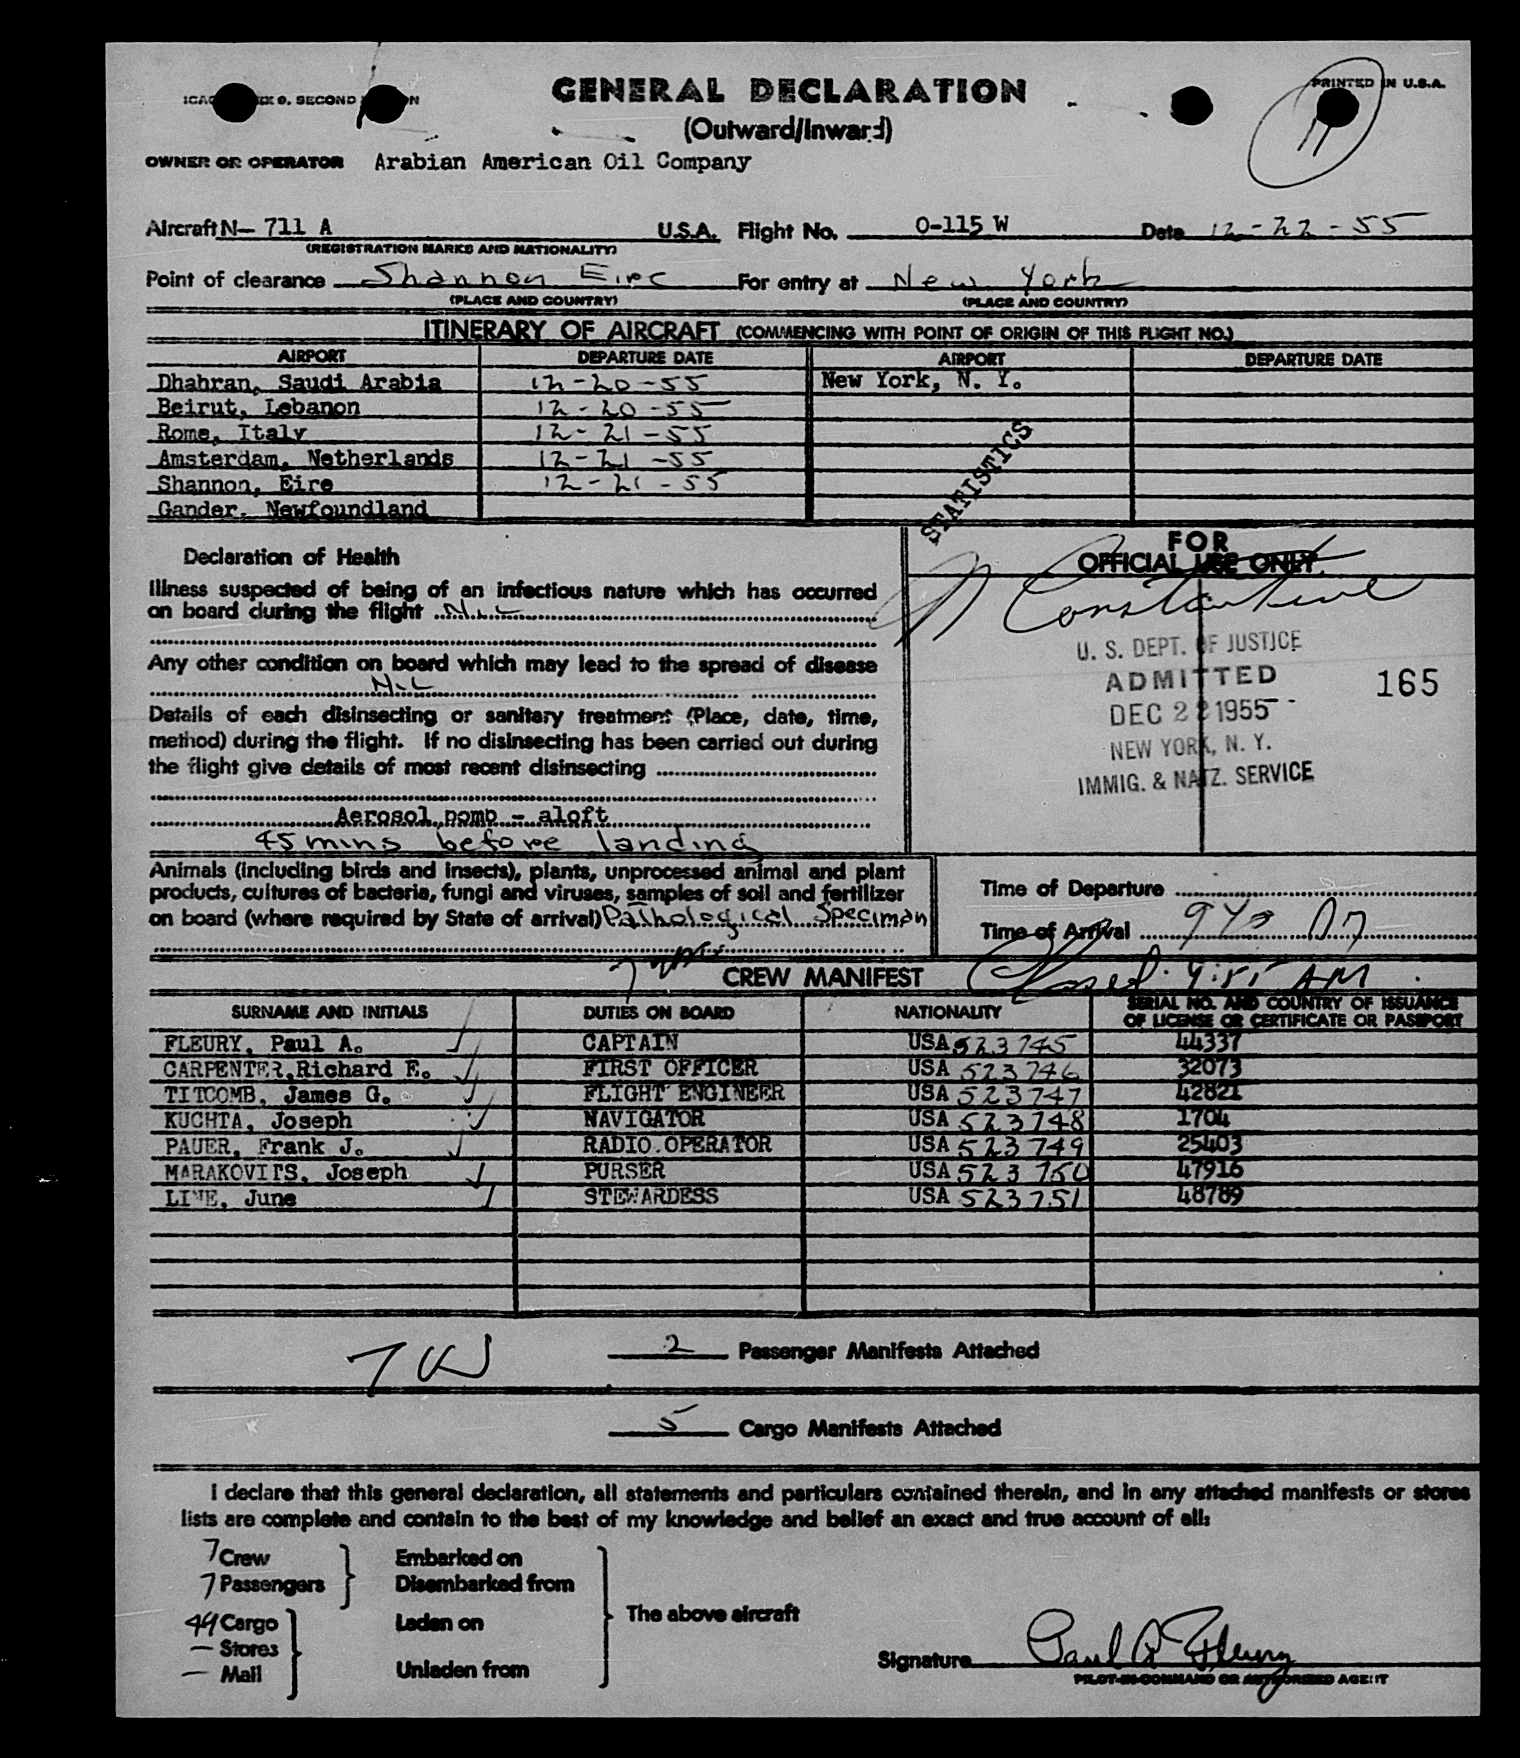 GENERAL DECLARATION
PRINTED IN U.S.A.
9, SECOND
(Outward/Inward)
11
OWNER OR OPERATOR Arabian American Oil Company
Aircraft N- 711 A U.S.A. Flight No. O-115 W Date 12-22-55
(REGISTRATION MARKS AND NATIONALITY)
Point of clearance Shannon Eire For entry at New York
(PLACE AND COUNTRY) (PLACE AND COUNTRY)
ITINERARY OF AIRCRAFT (COMMENCING WITH POINT OF ORIGIN OF THIS FLIGHT NO.)
AIRPORT DEPARTURE DATE AIRPORT DEPARTURE DATE
Dhahran, Saudi Arabia 12-20-55 New York, N. Y.
Beirut, Lebanon 12-20-55
Rome, Italy 12-21-55
Amsterdam, Netherlands 12-21-55
Shannon, Eire 12-21-55
Gander, Newfoundland
STATISTICS
FOR
OFFICIAL USE ONLY
Constantine
U. S. DEPT. OF JUSTICE
ADMITTED
165
DEC 22 1955
NEW YORK, N. Y.
IMMIG. & NATZ. SERVICE
Declaration of Health
Illness suspected of being of an infectious nature which has occurred
on board during the flight NIL
Any other condition on board which may lead to the spread of disease
NIL
Details of each disinsecting or sanitary treatment (Place, date, time,
method) during the flight. If no disinsecting has been carried out during
the flight give details of most recent disinsecting
Aerosol pomb - aloft
45 mins before landing
Animals (including birds and insects), plants, unprocessed animal and plant
products, cultures of bacteria, fungi and viruses, samples of soil and fertilizer
on board (where required by State of arrival) Pathological Speciman
Time of Departure
Time of Arrival 940 AM
CREW MANIFEST
SURNAME AND INITIALS DUTIES ON BOARD NATIONALITY SERIAL NO. AND COUNTRY OF ISSUANCE
OF LICENSE OR CERTIFICATE OR PASSPORT
FLEURY, Paul A. CAPTAIN USA 523745 44337
CARPENTER, Richard E. FIRST OFFICER USA 523746 32073
TITCOMB, James G. FLIGHT ENGINEER USA 523747 42821
KUCHTA, Joseph NAVIGATOR USA 523748 1704
PAUER, Frank J. RADIO OPERATOR USA 523749 25403
MARAKOVITS, Joseph PURSER USA 523750 47916
LINE, June STEWARDESS USA 523751 48789
2 Passenger Manifests Attached
5 Cargo Manifests Attached
I declare that this general declaration, all statements and particulars contained therein, and in any attached manifests or stores
lists are complete and contain to the best of my knowledge and belief an exact and true account of all:
7 Crew Embarked on
7 Passengers Disembarked from
The above aircraft
49 Cargo Laden on
— Stores
— Mail Unladen from
Signature Paul A Fleury
PILOT-IN-COMMAND OR AUTHORIZED AGENT